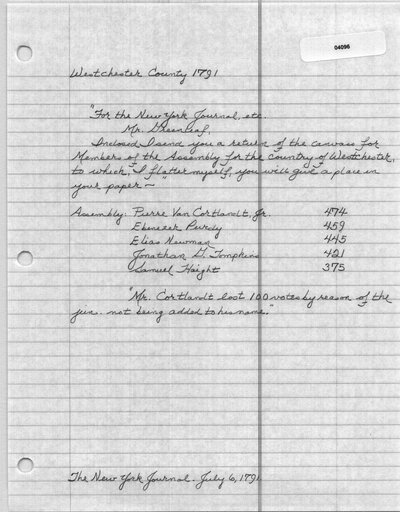 04096
Westchester County 1791
"For the New York Journal, etc.
Mr. Greenleaf,
Inclosed I send you a return of the canvass for
Members of the Assembly for the Country of Westchester,
to which, I flatter myself, you will give a place in
your paper ~
Assembly: Pierre Van Cortlandt, Jr. 474
Ebenezer Purdy 459
Elias Newman 445
Jonathan G. Tompkins 421
Samuel Haight 375
"Mr. Cortlandt lost 100 votes by reason of the
jun. not being added to his name."
The New York Journal. July 6, 1791